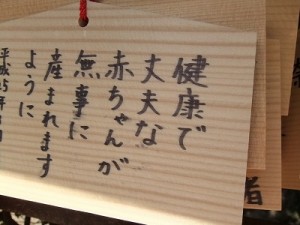 健康で
丈夫な
赤ちゃんが
無事に
産まれます
ように
平成25年
者